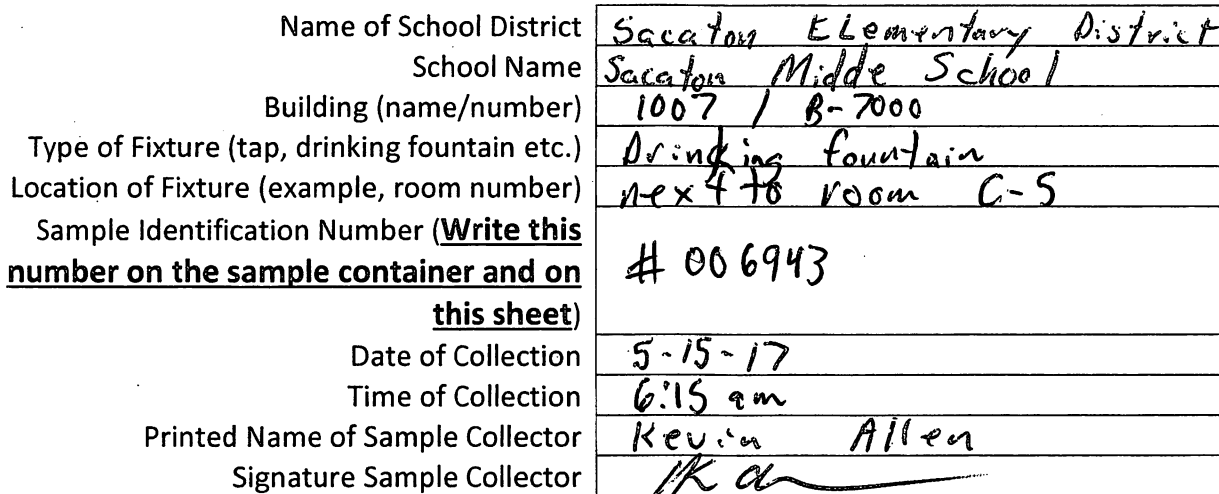 Name of School District Sacaton ELementary District
School Name Sacaton Midde School
Building (name/number) 1007 / B-7000
Type of Fixture (tap, drinking fountain etc.) Drinking fountain
Location of Fixture (example, room number) next to room C-5
Sample Identification Number (Write this
number on the sample container and on
this sheet)
# 006943
Date of Collection 5-15-17
Time of Collection 6:15 am
Printed Name of Sample Collector Kevin Allen
Signature Sample Collector